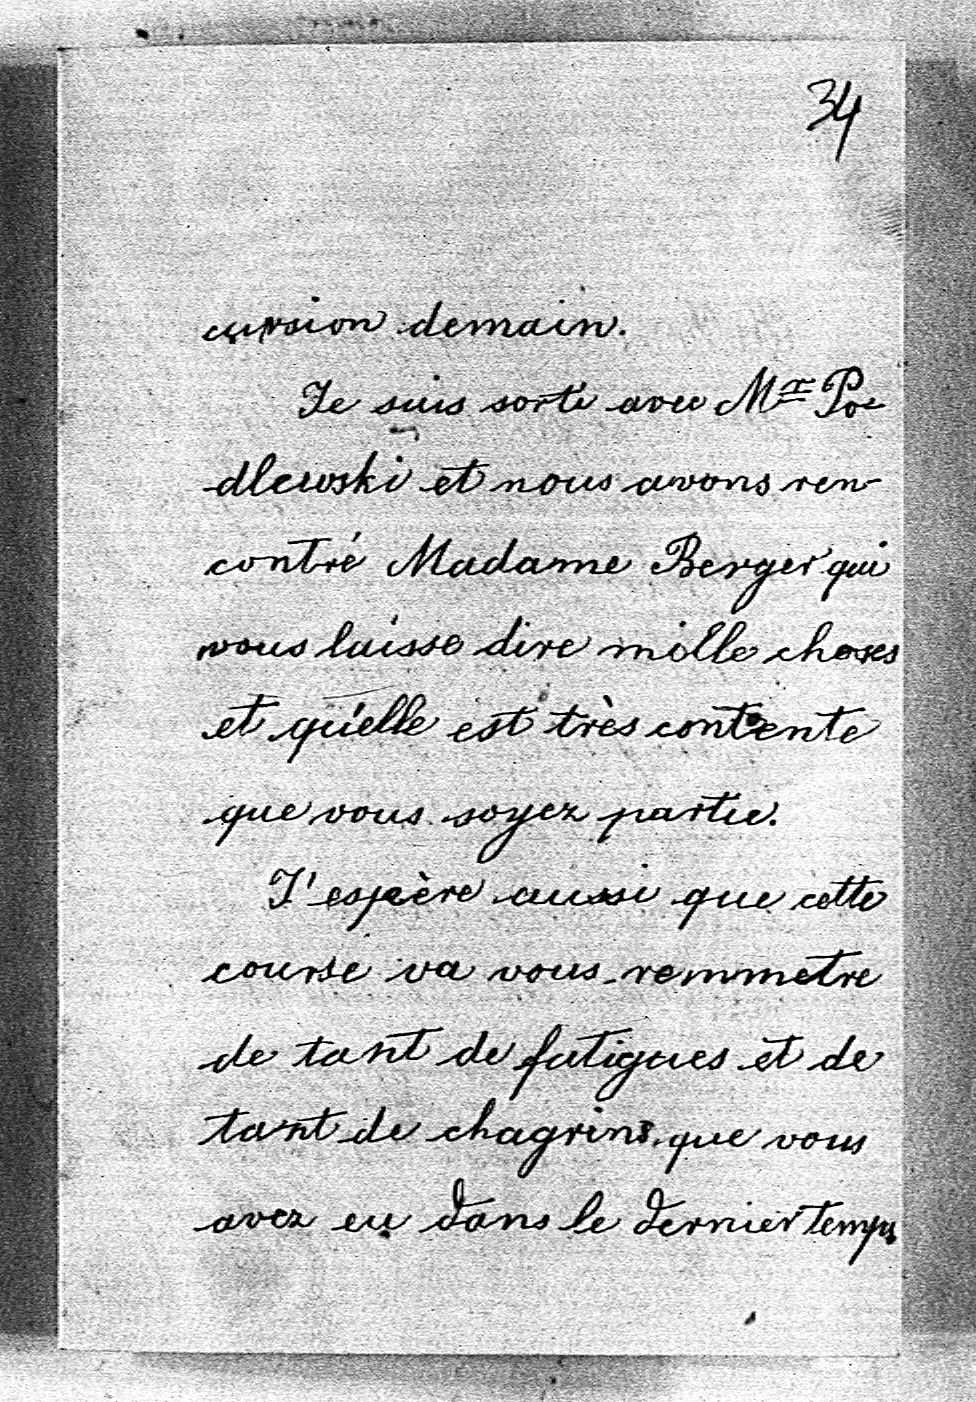 34
cursion demain.
Je suis sorti avec Mr Po-
dlewski et nous avons ren-
contré Madame Berger qui
vous laisse dire mille choses
et qu'elle est très contente
que vous soyez partie.
J'espère aussi que cette
course va vous remmetre
de tant de fatigues et de
tant de chagrins, que vous
avez eu dans le dernier temps